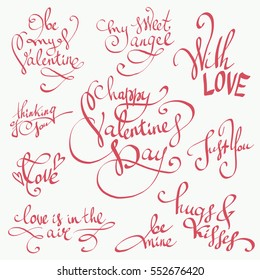 be
my
Valentine
my sweet
angel
With
LOVE
thinking
of you
happy
Valentines
Day
Just You
Love
love is in the
air
be
mine
hugs &
kisses
shutterstock
552676420